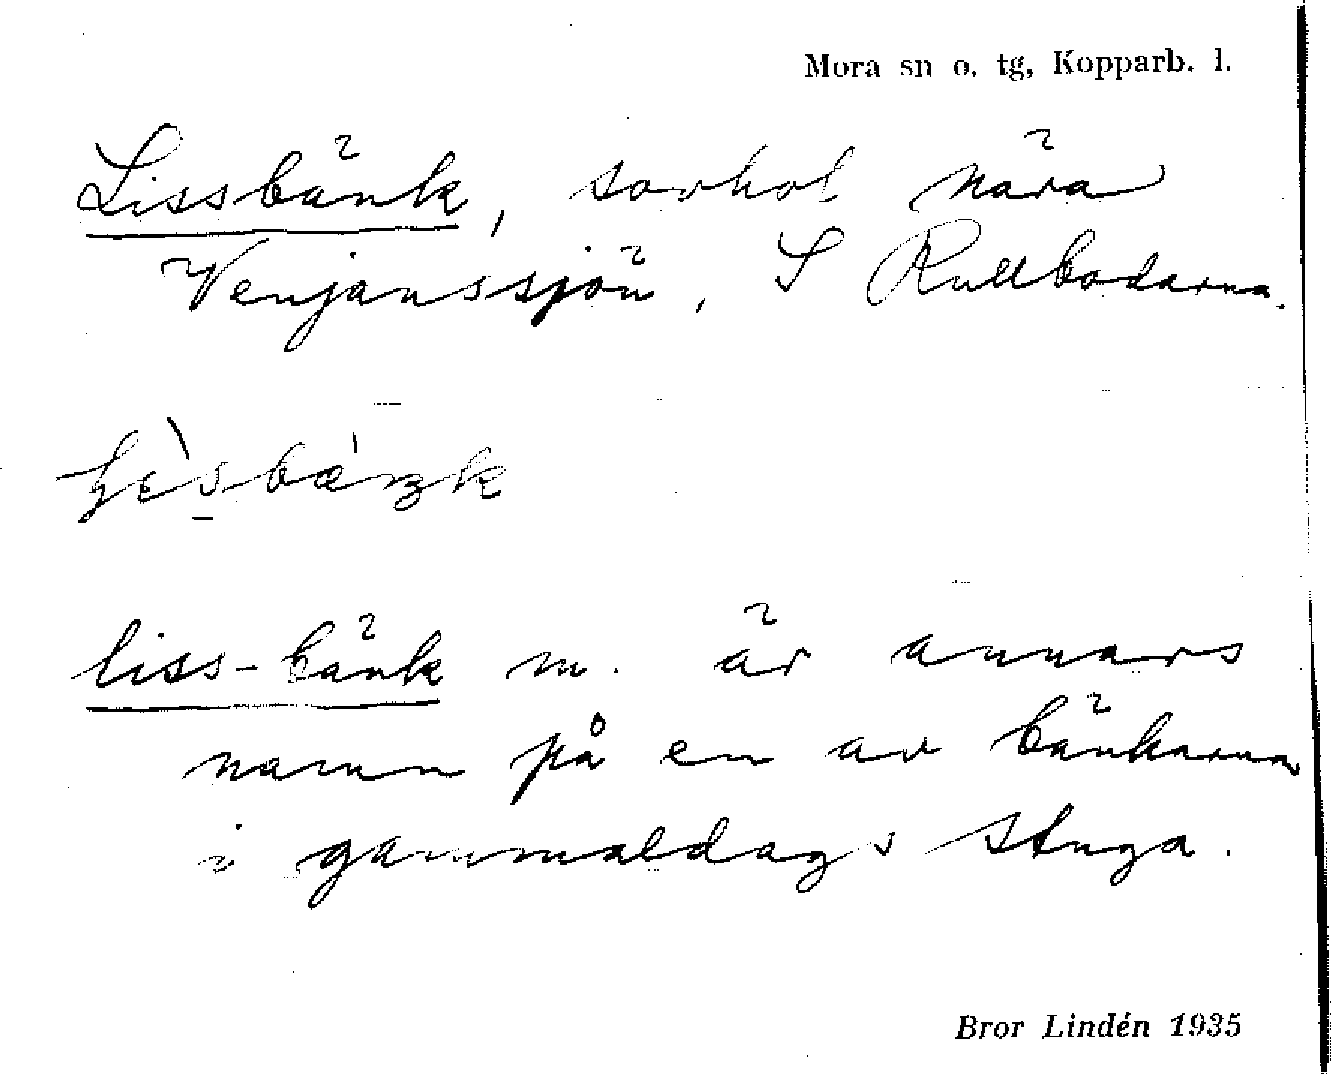 Mora sn o. tg, Kopparb. l.
Lissbänk, sovhol nära
Venjanssjön, S Rullbodarna.
liss-bänk m. är annars
namn på en av bänkarna
i gammaldags stuga.
Bror Lindén 1935